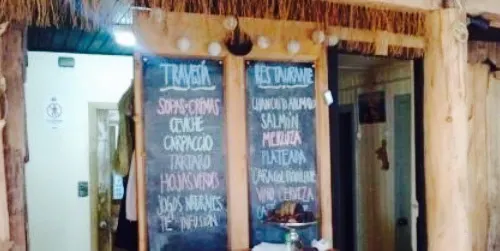 TRAVESÍA
SOPAS-CREMAS
CEVICHE
CARPACCIO
TARTARO
HOJAS VERDES
JUGOS NATURALES
TÉ INFUSIÓN
RESTAURANTE
CHANCHO AHUMADO
SALMÓN
MERLUZA
PLATEADA
VINO CERVEZA